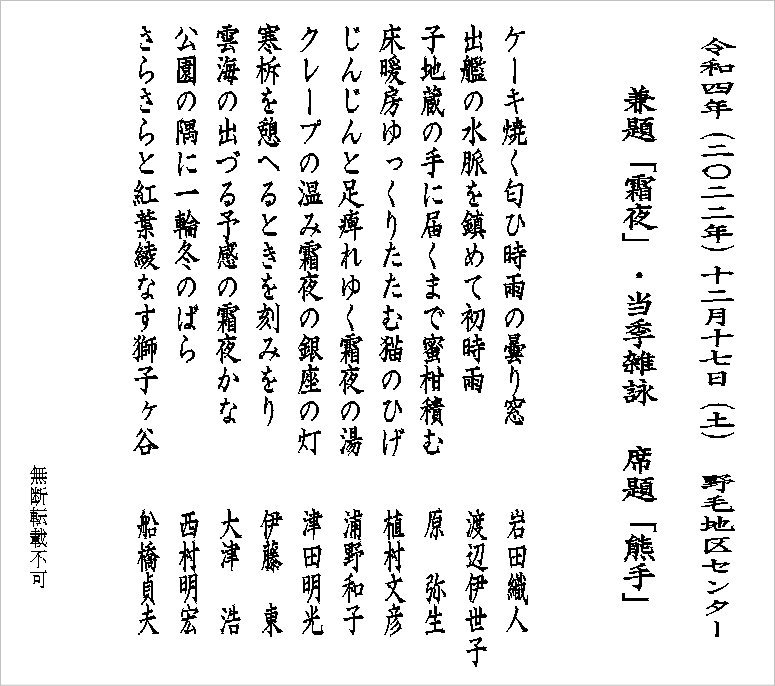 令和四年（二〇二二年）十二月十七日（土）　野毛地区センター
兼題「霜夜」・当季雑詠　席題「熊手」
ケーキ焼く匂ひ時雨の曇り窓　岩田織人
出艦の水脈を鎮めて初時雨　渡辺伊世子
子地蔵の手に届くまで蜜柑積む　原　弥生
床暖房ゆっくりたたむ猫のひげ　植村文彦
じんじんと足痺れゆく霜夜の湯　浦野和子
クレープの温み霜夜の銀座の灯　津田明光
寒柝を憩へるときを刻みをり　伊藤　東
雲海の出づる予感の霜夜かな　大津　浩
公園の隅に一輪冬のばら　西村明宏
さらさらと紅葉綾なす獅子ヶ谷　船橋貞夫
無断転載不可